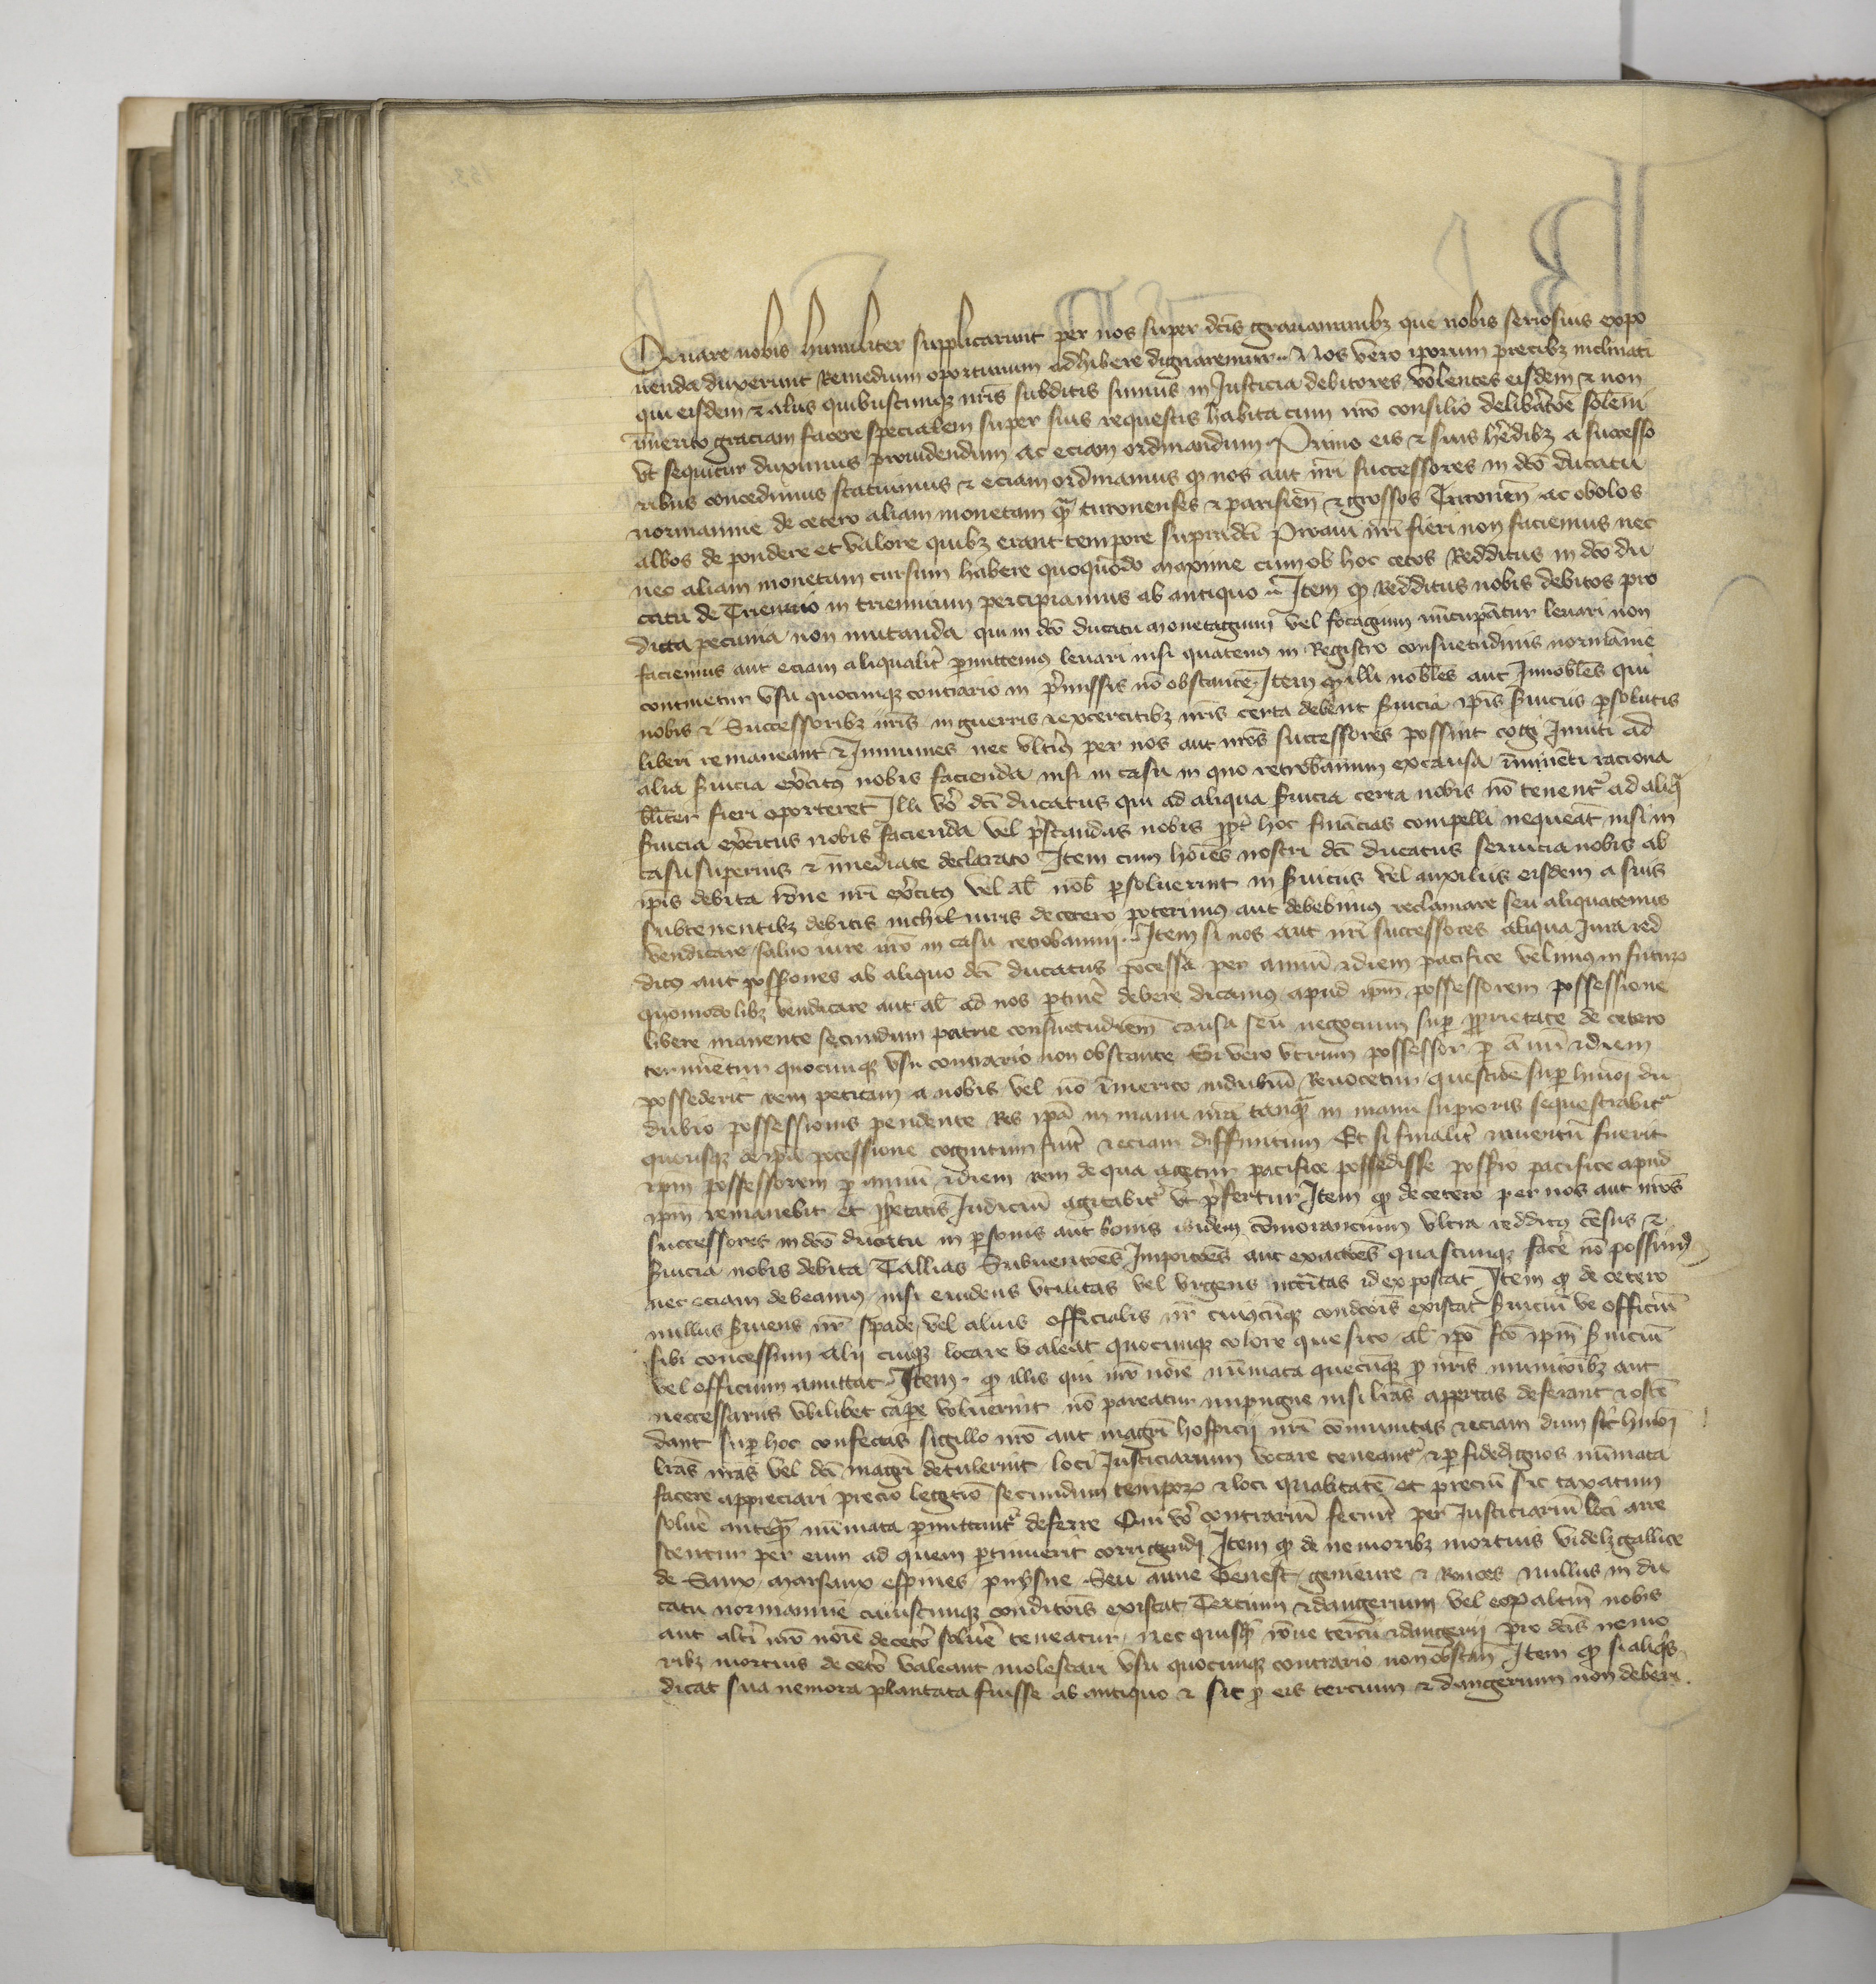 Quare nobis humiliter supplicarunt per nos super dc̄is grauaminibꝫ que nobis seriosius expo
nenda duxerunt Remedium oportunum adhibere dignaremur Nos vero ip̄orum precibꝫ inclinati
qui eisdem ⁊ alijs quibuscunqꝫ nr̄is subditis sumus in Iusticia debitores volentes eisdem ⁊ non
īmerito graciam facere specialem super suis requestis habita cum nrō consilio delibãtoē solēni
vt sequitur duximus prouidendum ac eciam ordinandum Primo eis ⁊ suis hẽdibꝫ a successo
ribus concedimus statuimus ⁊ eciam ordinamus ꝙ nos aut nr̄i successores in dc̄o ducatu
normannie de cetero aliam monetam qͣ̄ turonenses ⁊ parisien̄ ⁊ grossos Turonen̄ ac obolos
albos de pondere et valore quibꝫ erant tempore supradc̄i Proaui nr̄i fieri non faciemus nec
nec aliam monetam cursum habere quoquōdo maxime cum ob hoc cetos Redditus in dc̄o du
catu de Triennio in triennium percipiamus ab antiquo Item ꝙ Redditus nobis debitos pro
dicta pecunia non mutanda qui in dc̄o ducatu monetagium vel focagium nūcupātur leuari non
faciemus aut eciam aliqualit̉ ꝑmittemꝰ leuari nisi quatenꝰ in Registro consuetudinis normānie
continetur vsu quocunqꝫ contrario in p̉missis nō obstante Item ꝙ illi nobiles aut Innobiles qui
nobis ⁊ Successoribꝫ nr̄is in guerris ⁊ excercitibꝫ nr̄is certa debent s̉uicia ip̄is s̉uiciis ꝑsolutis
liberi remaneant ⁊ Immunes nec vlt̉iꝰ per nos aut nr̄os successores possint cogi Inuiti ad
alia s̉uicia ex̉citꝰ nobis facienda nisi in casu in quo retrobannum ex causa īminēti raciona
bilit̉ fieri oporteret Illi v̉o dc̄i ducatus qui ad aliqua s̉uicia certa nobis nō tenent̉ ad aliqͣ
s̉uicia ex̉citus nobis facienda vel p̉standas nobis ꝓpt̉ hoc finãcias compelli nequeãt nisi in
casu superius ⁊ īmediate declarato Item cum hoīes nostri dc̄i ducatus seruicia nobis ab
ip̄is debita rōne nr̄i ex̉citꝰ vel al̄ nob̄ ꝑsoluerint in s̉uiciis vel auxiliis eisdem a suis
subtenentibꝫ debitis nichil iuris de cetero poterimꝰ aut debebimus reclamare seu aliquatenus
vendicare saluo iure nrō in casu retrobannij Item si nos aut nr̄i successores aliqua Iura red
ditꝰ aut possͦones ab aliquo dc̄i ducatus possessa per annū ⁊ diem pacifice velimꝰ in futurꝫ
quomodolibꝫ vendicare aut al̄ ad nos ꝑtiner̉ debere dicamꝰ apud ip̄m possessorem possessione
libere manente secundum patrie consuetudinem causa seu negocium suꝑ ꝓprietate de cetero
terminetur quocunqꝫ vsu contrario non obstante Si vero vtrum possessor ꝑ annū ⁊ diem
possederit rem petitam a nobis vel nō īmerito in dubiū Reuocetur questiōe suꝑ hmōi du
dubio possessionis pendente Res ip̄a in manu nr̄a tanqͣ in manu suꝑioris sequestrabit̉
quousqꝫ de ip̄a possessione cognitum fủit ⁊ eciam diffinitum Et si finalit̉ inuentū fuerit
ip̄m possessorem ꝑ annū ⁊ diem rem de qua agetur pacifice possedisse possͦio pacifice apud
ip̄m remanebit et ꝓprietatis Iudiciū agitabit̉ vt p̉fertur Item ꝙ de cetero per nos aut nr̄os
successores in dc̄o ducatu in ꝑsonis aut bonis ibidem cōmorancium vltra redditꝰ cēsus ⁊
s̉uicia nobis debita Tallias Subuentōes Impōitōes aut exactōes quascunqꝫ facer̉ nō possimꝰ
nec eciam debeamꝰ nisi euidens vtilitas vel vrgens necc̄itas id exposcat Item ꝙ de cetero
nullus s̉uiens nr̄ spade vel alius officialis nr̄ cuiꝰcūqꝫ condc̄ois existat s̉uiciū ve officiū
sibi concessum alij cuiqꝫ locare valeat quocunqꝫ colore quesito al̄ ip̄o fc̄o ip̄m s̉uiciū
vel officium amittat Item ꝙ illis qui nrō noīe nūmata quecūqꝫ ꝓ nr̄is municōibꝫ aut
neccessariis vbilibet caꝑe voluerint nō pareatur impugne nisi lrās appertas deferant ⁊ ostē
dant suꝑ hoc confectas sigillo nrō aut magr̄i hospicij nr̄i cōmunitas ⁊ eciam dum sic̄ hmōi
lrās nr̄as vel dc̄i magr̄i detulerint loci Iusticiarium vocare teneant̉ ⁊ ꝑ fidedignos nūmata
facere appreciari precio legitīo secundum temporꝫ ⁊ loci qualitatē et preciū sic taxatum
soluer̉ anteqͣ̄ nūmata ꝑmittant̉ deferre Qui v̉o contrariū fecerit per Iusticiariū loci arre
stentur per eum ad quem ꝑtinuerit corrigendi Item ꝙ de nemoribꝫ mortuis videlꝫ gallice
de Saux marsaux espines puysne Seu aune Genest genieure ⁊ Ronces nullus in du
catu normannie cuiuscunqꝫ condic̄ois existat Tercium ⁊ dangerium vel eoꝝ alt̉um nobis
aut alt̉i nrō noīe de cet̉o soluer̉ teneatur nec quisqͣ̄ rōne tercij ⁊ dangerij pro dc̄is nemo
ribꝫ mortuis de cet̉o valeant molestari vsu quocunqꝫ contrario non obstan̄ Item ꝙ si aliq̉s
dicat sua nemora plantata fuisse ab antiquo ⁊ sic ꝓ eis tercium ⁊ dangerium non deberi